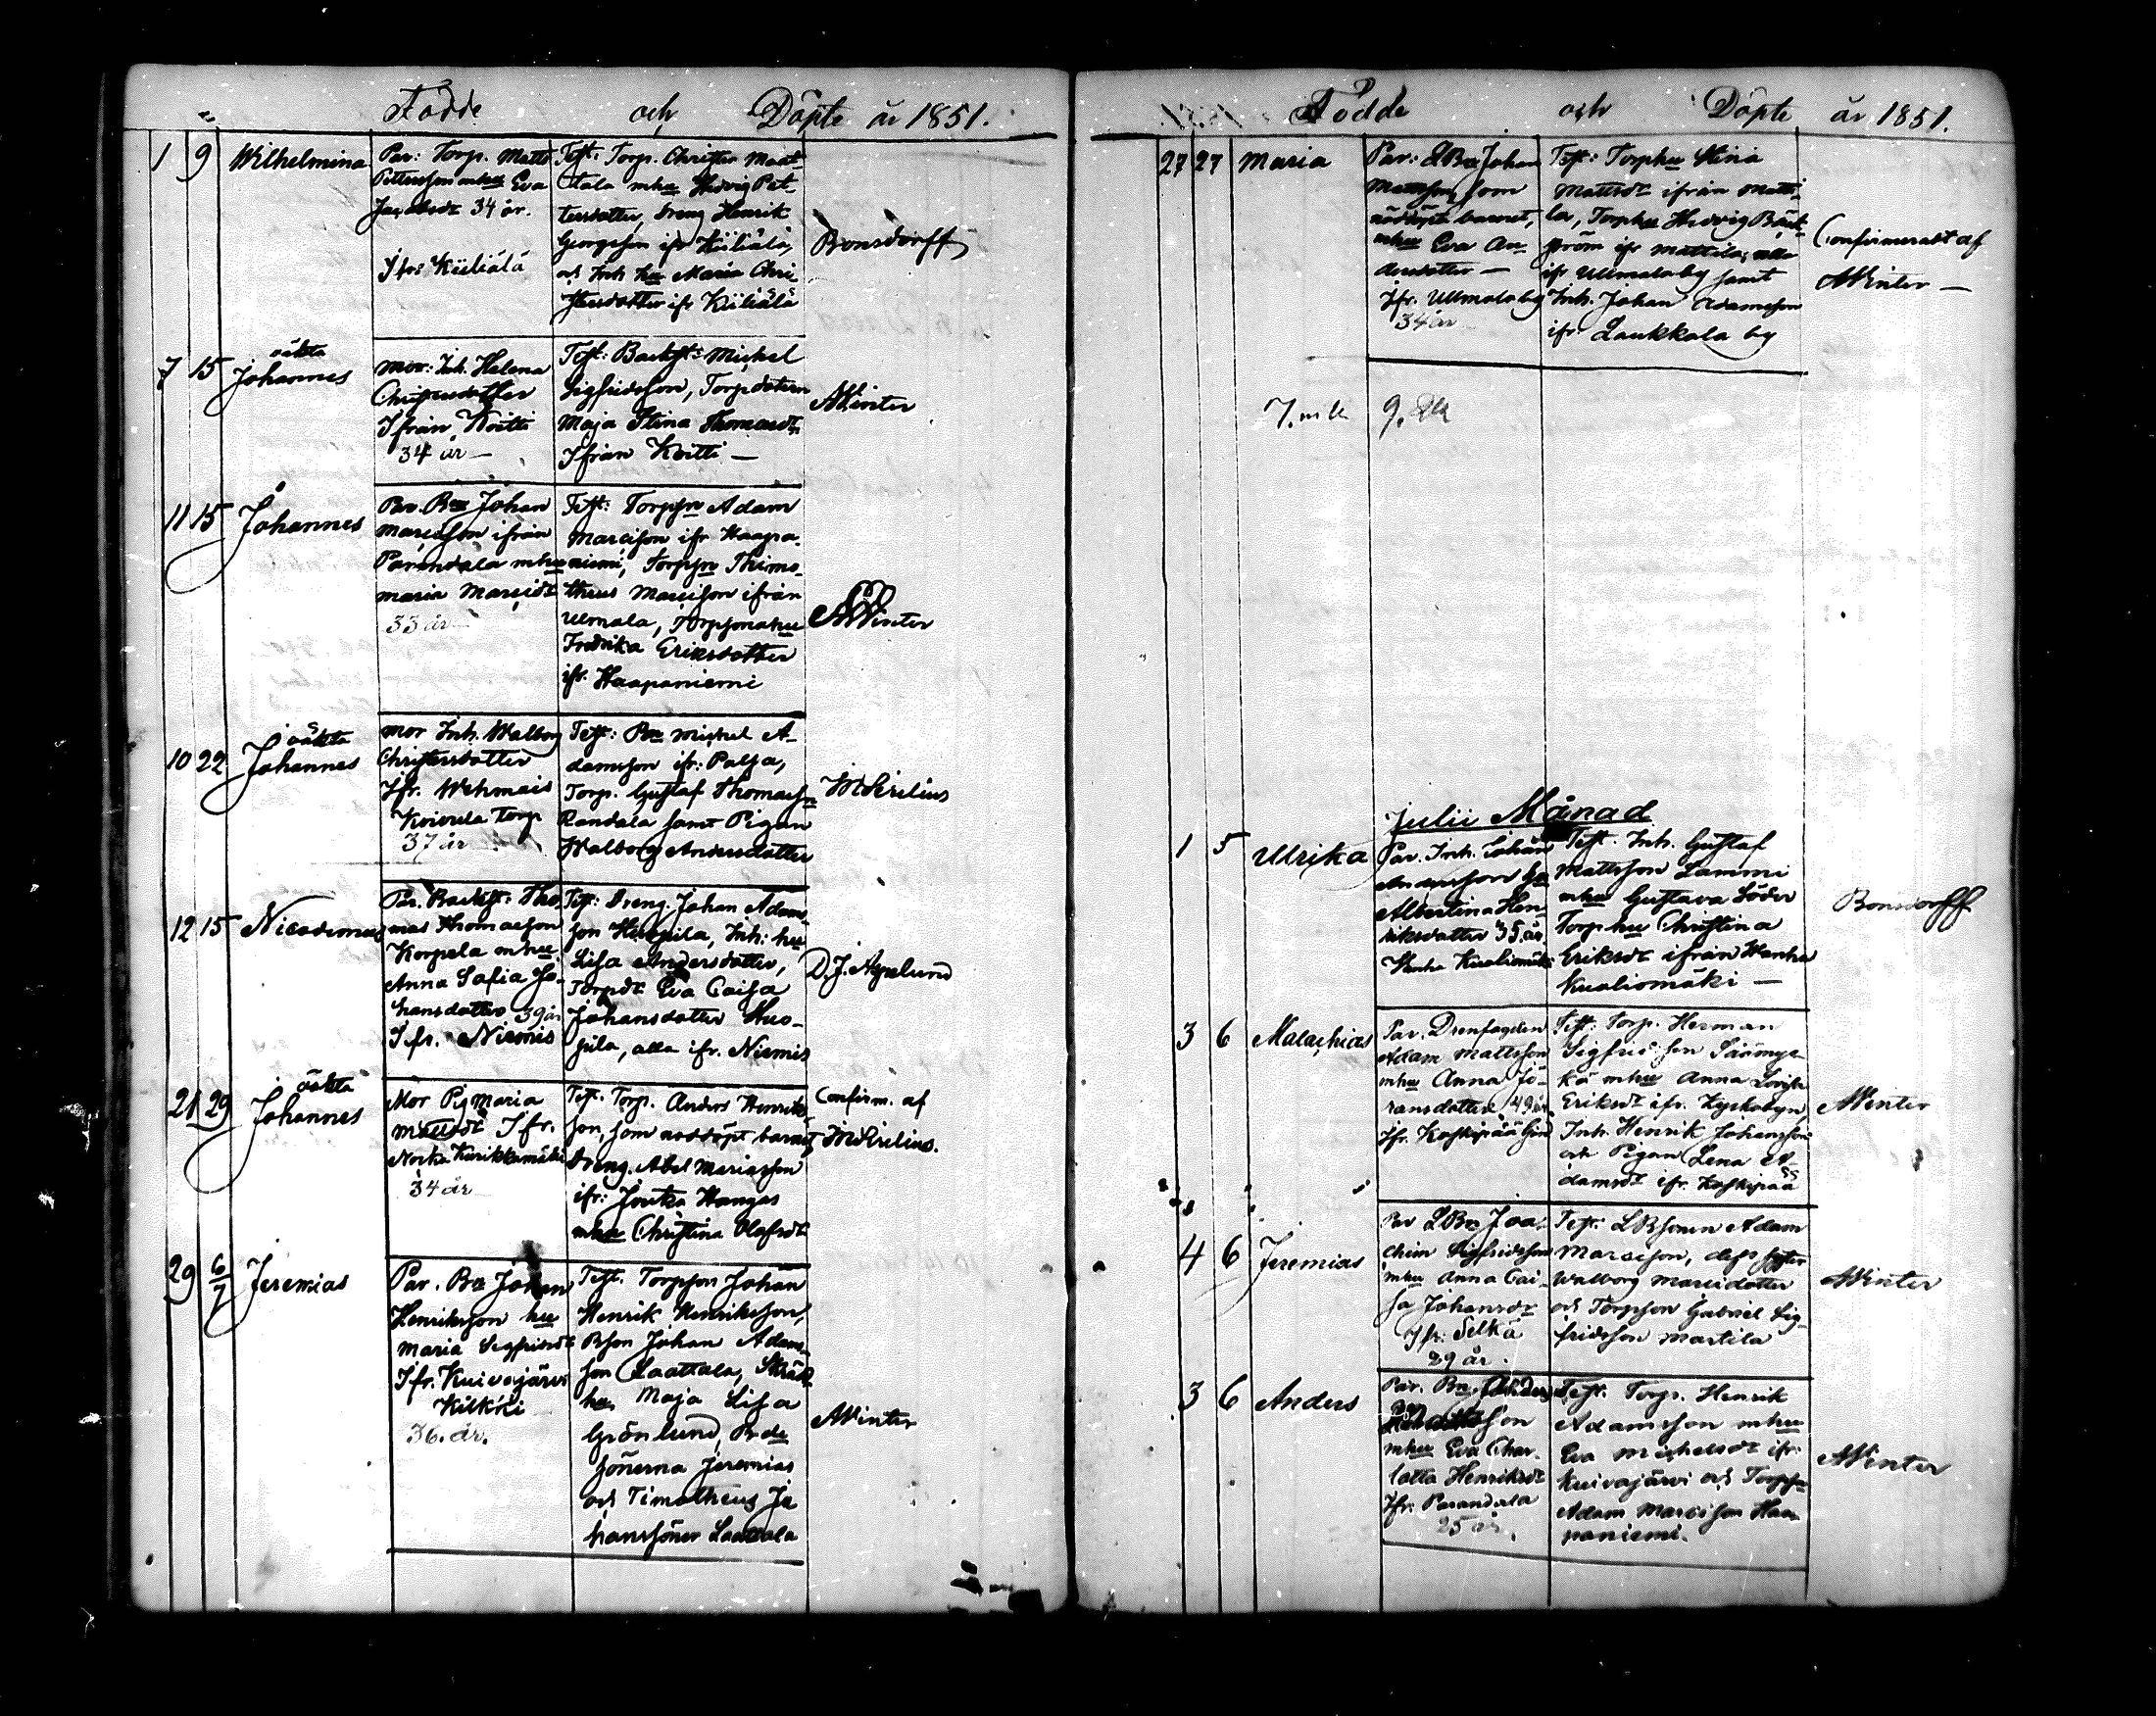 Födde och Döpte år 1851.
1 9 Wilhelmina
Par: Torp. Matts
Pettersson mhu Eva
Jacobsdr 34 år.
Ifr: Kiiliälä
Test: Torp. Christer Matt
tala mhu Hedvig Pet-
tersdotter, Dreng Henrik
Georgsson ifr Kiiliälä,
och Inh hu Maria Chri-
stersdotter ifr Kiiliälä
Bonsdorff
7 15 oäkta
Johannes
Mor: Inh. Helena
Christersdotter
Ifrån Koitti
34 år —
Test: Backst: Michel
Sigfridsson, Torpdottern
Maja Stina Thomasdr
Ifrån Koitti —
AWinter
11 15 Johannes
Par. Bn Johan
Marcisson ifrån
Parandala mhu
Maria Marcisdr
33 år
Test: Torpsn Adam
Marcisson ifr Haapa-
niemi, Torpsn Thimo-
theus Marcisson ifrån
Ulmala, Torpsonahu
Fredrika Eriksdotter
ifr. Haapaniemi
AWinter
10 22 oäkta
Johannes
Mor Inh. Walborg
Christersdotter
Ifr. Wehmais
Koivula Torp
37 år
Test: Bn Michel A-
damsson ifr: Palsa,
Torp. Gustaf Thomassn
Randala samt Pigan
Walborg Andersdotter
12 15 Nicodemus
Par. Backst: Tho-
mas Thomasson
Korpela mhu
Anna Safia Jo-
hansdotter 39 år
Ifr. Niemis
Test: Dreng Johan Adams-
son, Inh: hu
Lisa Andersdotter,
Torpdr Eva Caisa
Johansdotter Huo-
pila, alla ifr. Niemis
D. J. Apelund
21 29 oäkta
Johannes
Mor Pig Maria
Ifr.
34 år
Test. Torp. Anders Henriks-
son, som nöddöpt barnet,
Dreng. Abel Mariasson
ifr: Jouka Hangas
mhu Christina Olofsdr
Confirm. af
29 6/7 Jeremias
Par. Bn Johan
Henriksson hu
Maria Sigfridsdr
Ifr. Kuivajärvi
Kilkki
36. år.
Test. Torpson Johan
Henrik Henriksson,
Bson Johan Adams-
son Laattala, Skräd-
hu. Maja Lisa
Grönlund,
Sönerna Jeremias
och Timotheus Jo
hanssöner Laattala
AWinter
Födde och Döpte år 1851.
27 27 Maria
Par: LBn Johan
Mattsson som
nöddöpt barnet,
mhu Eva An-
dersdotter —
Ifr. Ullmala by
34 år
Test: Torphu Stina
Mattsdr ifrån Matti-
la, Torphu Hedvig Bäck-
ström ifr Mattila, alla
ifr Ullmala by samt
Inh. Johan Adamsson
ifr. Laukkala by
Confirmeradt af
AWinter —
7. mk 9. qk
Julii Månad
1 5 Ulrika
Par. Inh. Johan
Andersson hu
Albertina Hen-
riksdotter 35. år.
Test. Inh. Gustaf
Mattsson Lammi
mhu Gustava Söder
Torphu Christina
Eriksdr ifrån Wanha
Kualiomäki —
Bonsdorff
3 6 Malachias
Par. Drenfogden
Adam Mattsson
mhu Anna Jö-
ransdotter 49 år.
Ifr. Koskipää
Test: Torp. Herman
Sigfridsson Säämys-
kä mhu Anna Lovisa
Eriksdr ifr.
Inh. Henrik Johansson
och Pigan Lena A-
damsdr ifr. Koskipää
AWinter
4 6 Jeremias
Par LBn Joa-
chim Sigfridsson
mhu Anna Cai-
sa Johansdr
Ifr: Selkä
29 år.
Test: LBsonen Adam
Marcisson, dess syster
Walborg Marcidotter
och Torpson Gabriel Sig-
fridsson Martila
AWinter
3 6 Anders
Par. Bn Anders
mhu Eva Char-
lotta Henriksdr
Ifr: Parandala
25 år.
Test. Torp. Henrik
Adamsson mhu
Eva Michelsdr ifr:
Kuivajärvi och Torpsn
Adam Marcisson Haa-
paniemi.
AWinter